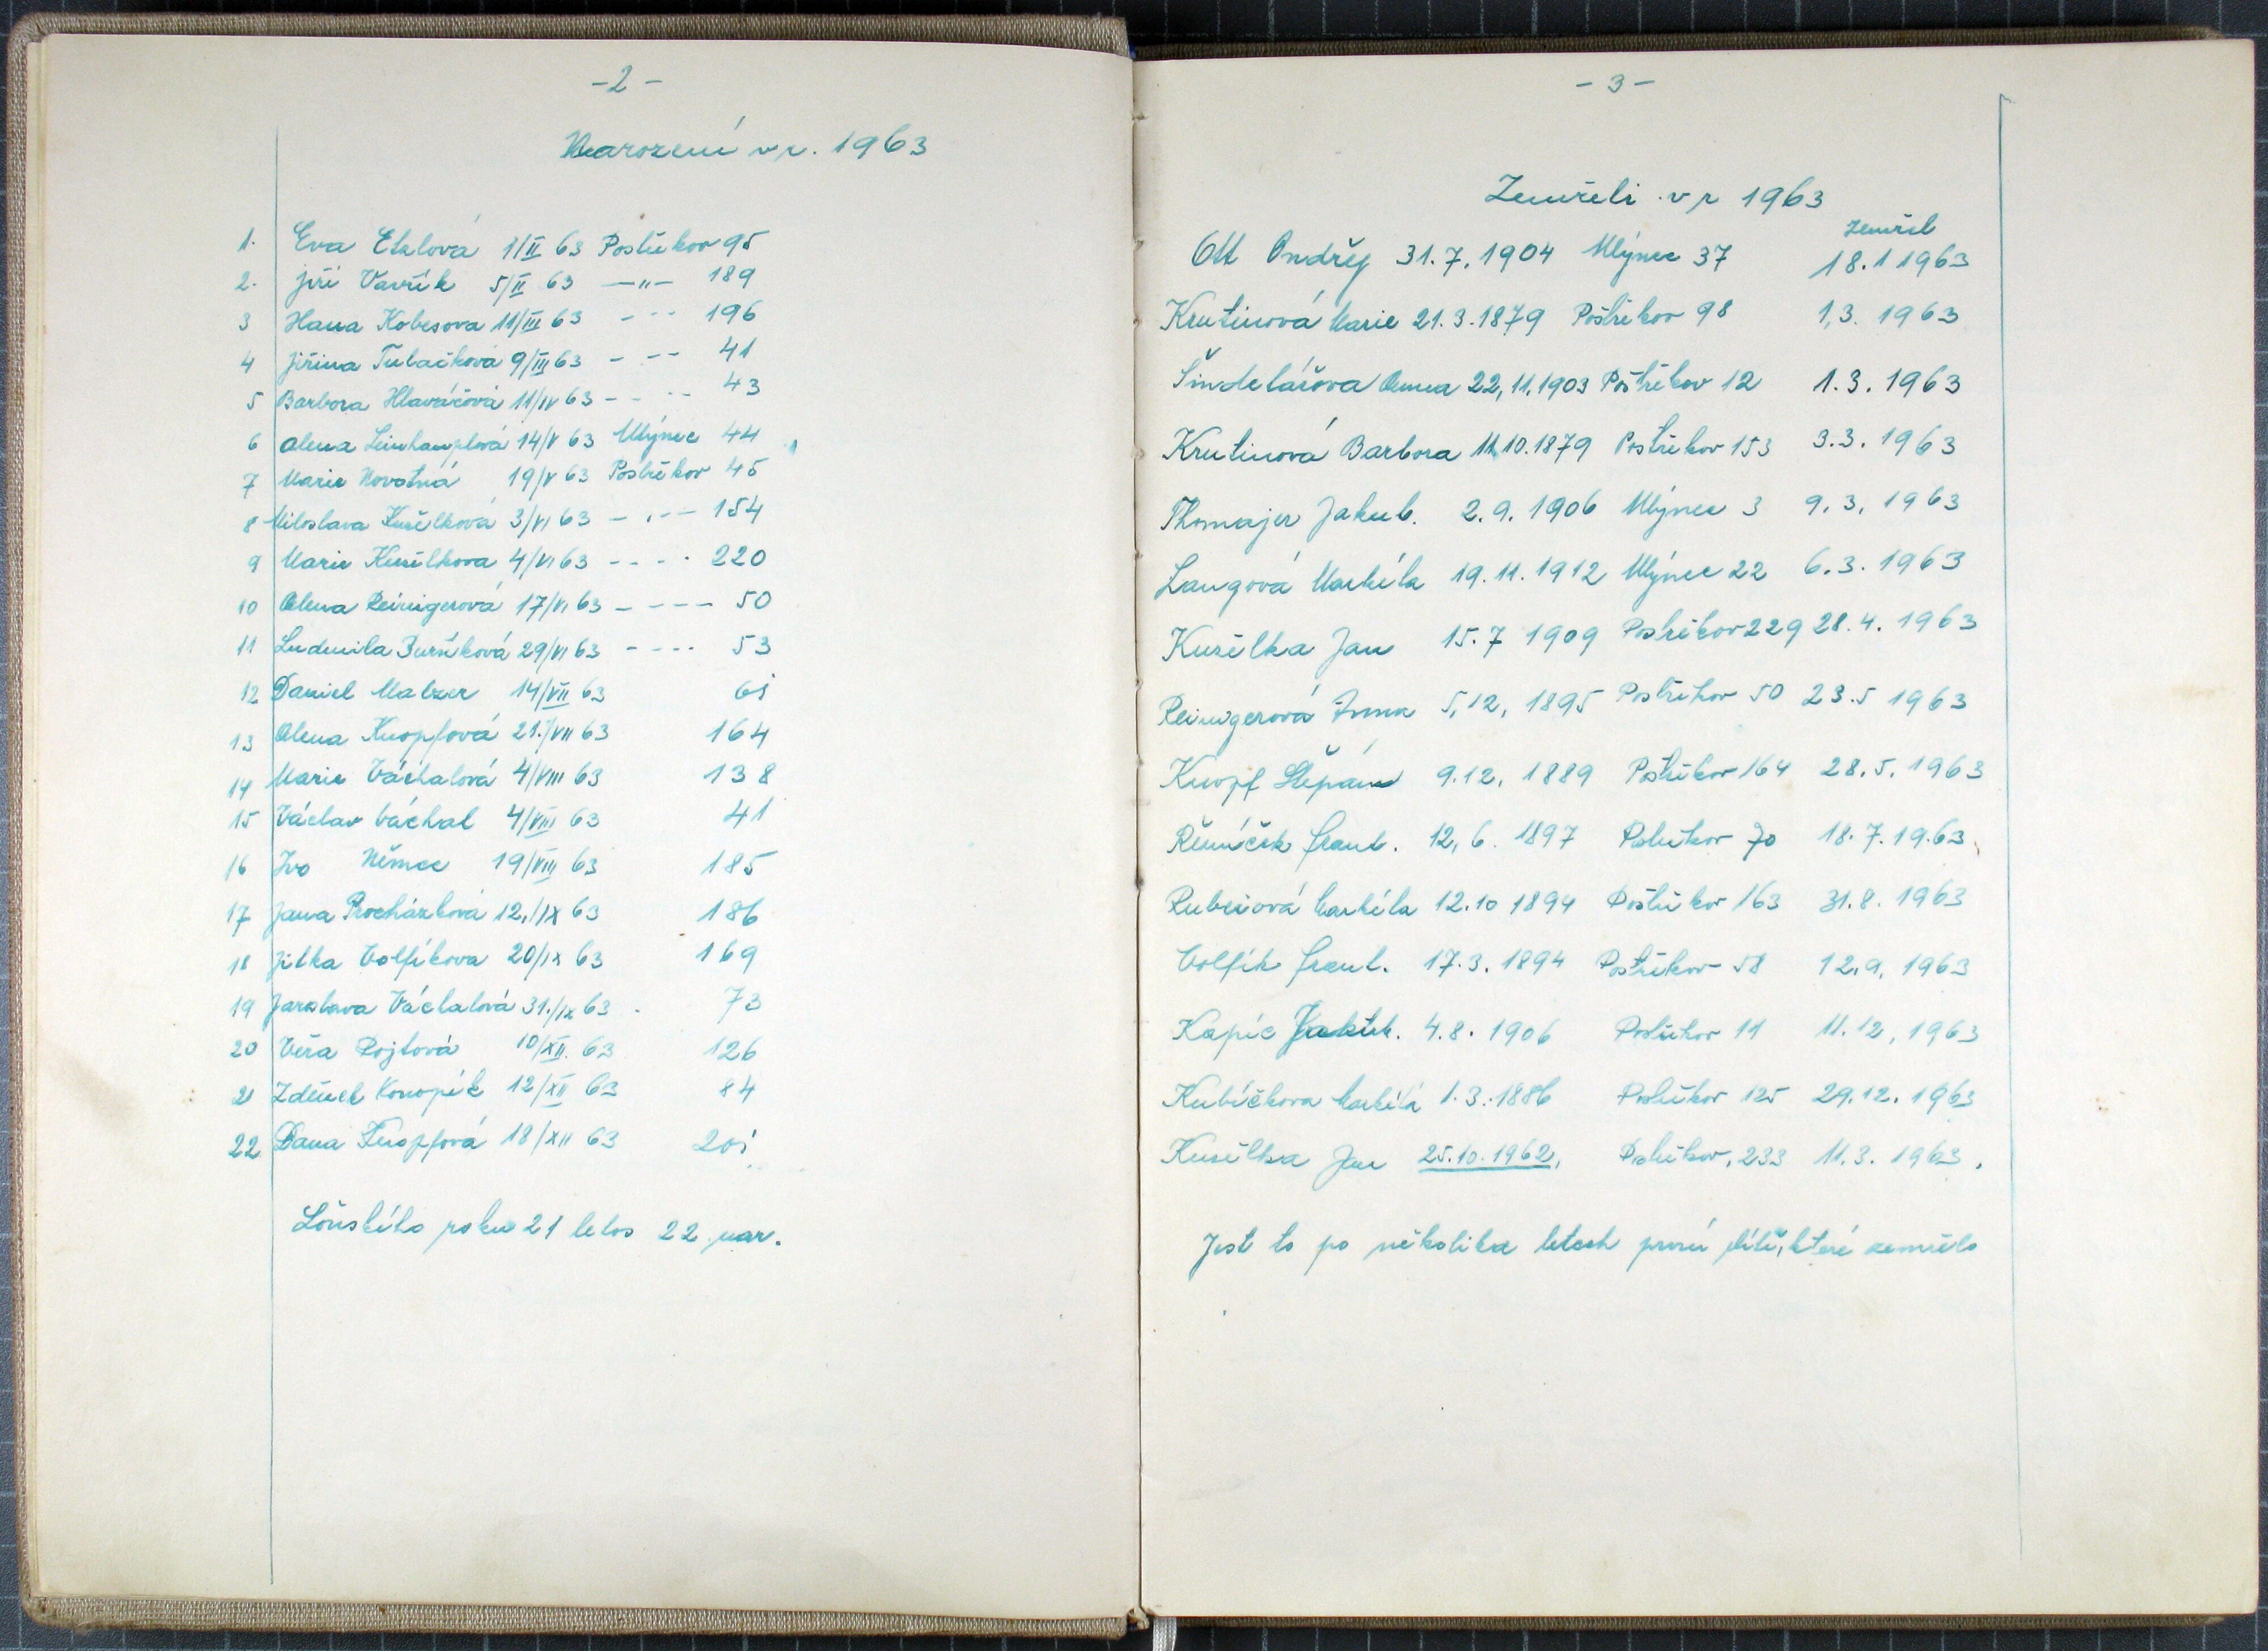 -2-
Narození v r. 1963
1. Eva Etzlová 1/II 63 Postřekov 95
2. Jiří Vavřík 5/II 63 —"— 189
3 Hana Kobesova 11/III 63 - - - 196
4 Jiřina Tubačková 9/III 63 - - - 41
5 Barbora Hlaváčová 11/IV 63 - - - - 43
6 Alena Leinhauplová 14/V 63 Mlýnec 44
7 Marie Novotná 19/V 63 Postřekov 45
8 Miloslava Kuželková 3/VI 63 - . - - 154
9 Marie Kuželkova 4/VI 63 - - - - 220
10 Alena Reinigerová 17/VI 63 - - - - 50
11 Ludmila Buršíková 29/VI 63 - - - - 53
12 Daniel Malzer 14/VII 63 61
13 Alena Knopfová 21./VII 63 164
14 Marie Váchalová 4/VIII 63 138
15 Václav Váchal 4/VIII 63 41
16 Ivo Němec 19/VIII 63 185
17 Jana Procházková 12./IX 63 186
18 Jitka Volfíkova 20/IX 63 169
19 Jaroslava Váchalová 31./IX 63 73
20 Věra Pojtová 10/XII. 63 126
21 Zdeněk Konopík 12/XII 63 84
22 Dana Knopfová 18/XII 63 201
Loňského roku 21 letos 22 nar.
- 3 -
Zemřeli v r 1963
zemřel
Ott Ondřej 31.7.1904 Mlýnec 37 18.1 1963
Krutinová Marie 21.3.1879 Postřekov 98 1,3. 1963
Šindelářova Anna 22,11.1903 Postřekov 12 1.3.1963
Krutinová Barbora 11.10.1879 Postřekov 153 3.3.1963
Thomajer Jakub. 2.9.1906 Mlýnec 3 9.3.1963
Langová Markéta 19.11.1912 Mlýnec 22 6.3.1963
Kuželka Jan 15.7 1909 Postřekov 229 28.4.1963
Reinigerová Anna 5,12, 1895 Postřekov 50 23.5 1963
Knopf Štěpán 9.12.1889 Postřekov 164 28.5.1963
Řezníček Frant. 12,6.1897 Postřekov 70 18.7.1963
Markéta 12.10 1894 Postřekov 163 31.8.1963
Volfík Frant. 17.3.1894 Postřekov 58 12.9.1963
Kapic Jakub. 4.8.1906 Postřekov 11 11.12,1963
Kubíčkova Markéta 1.3.1886 Postřekov 125 29.12.1963
Kuželka Jan 25.10.1962, Postřekov, 233 11.3.1963.
Jest to po několika letech první dítě, které zemřelo